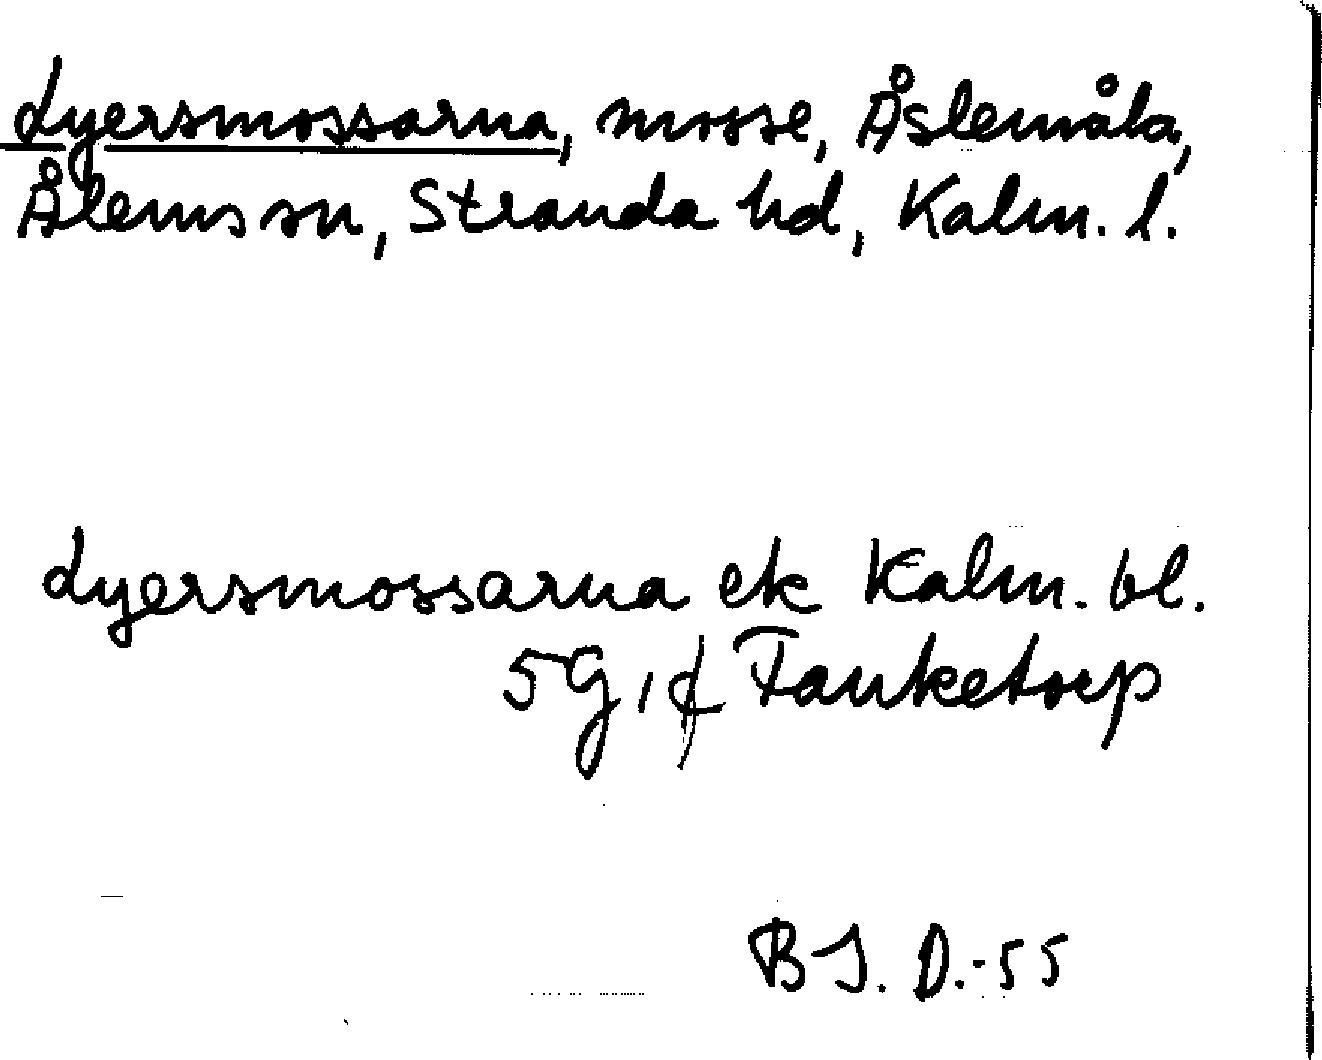 dyersmossarna, mosse, Åslemåla,
Ålems sn, Stranda hd, Kalm. l.
dyersmossarna ek Kalm. bl.
5 g, Fanketorp
BJ. D.-55